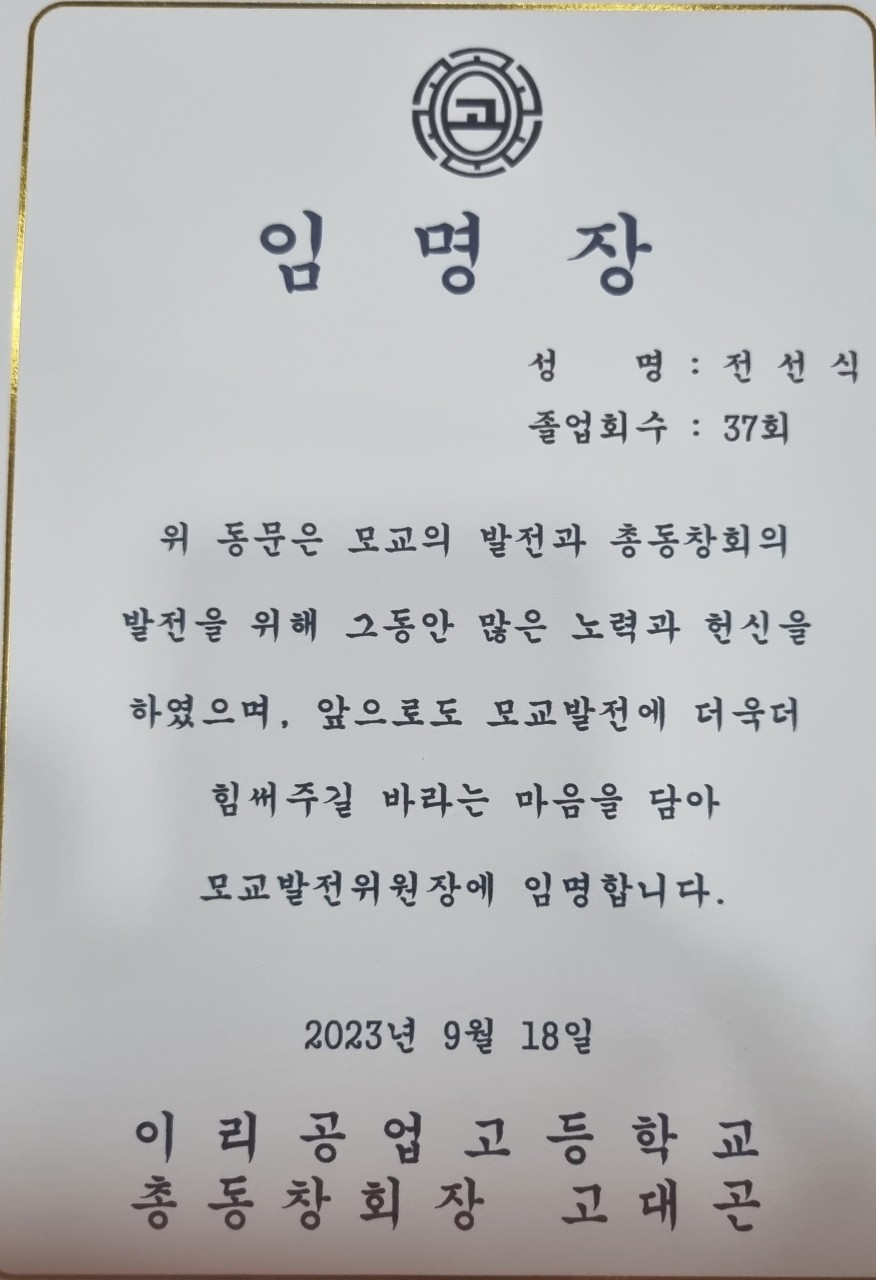 고
임 명 장
성 명 : 전 선 식
졸업회수 : 37회
위 동문은 모교의 발전과 총동창회의
발전을 위해 그동안 많은 노력과 헌신을
하였으며, 앞으로도 모교발전에 더욱더
힘써주길 바라는 마음을 담아
모교발전위원장에 임명합니다.
2023년 9월 18일
이 리 공 업 고 등 학 교
총 동 창 회 장 고 대 곤